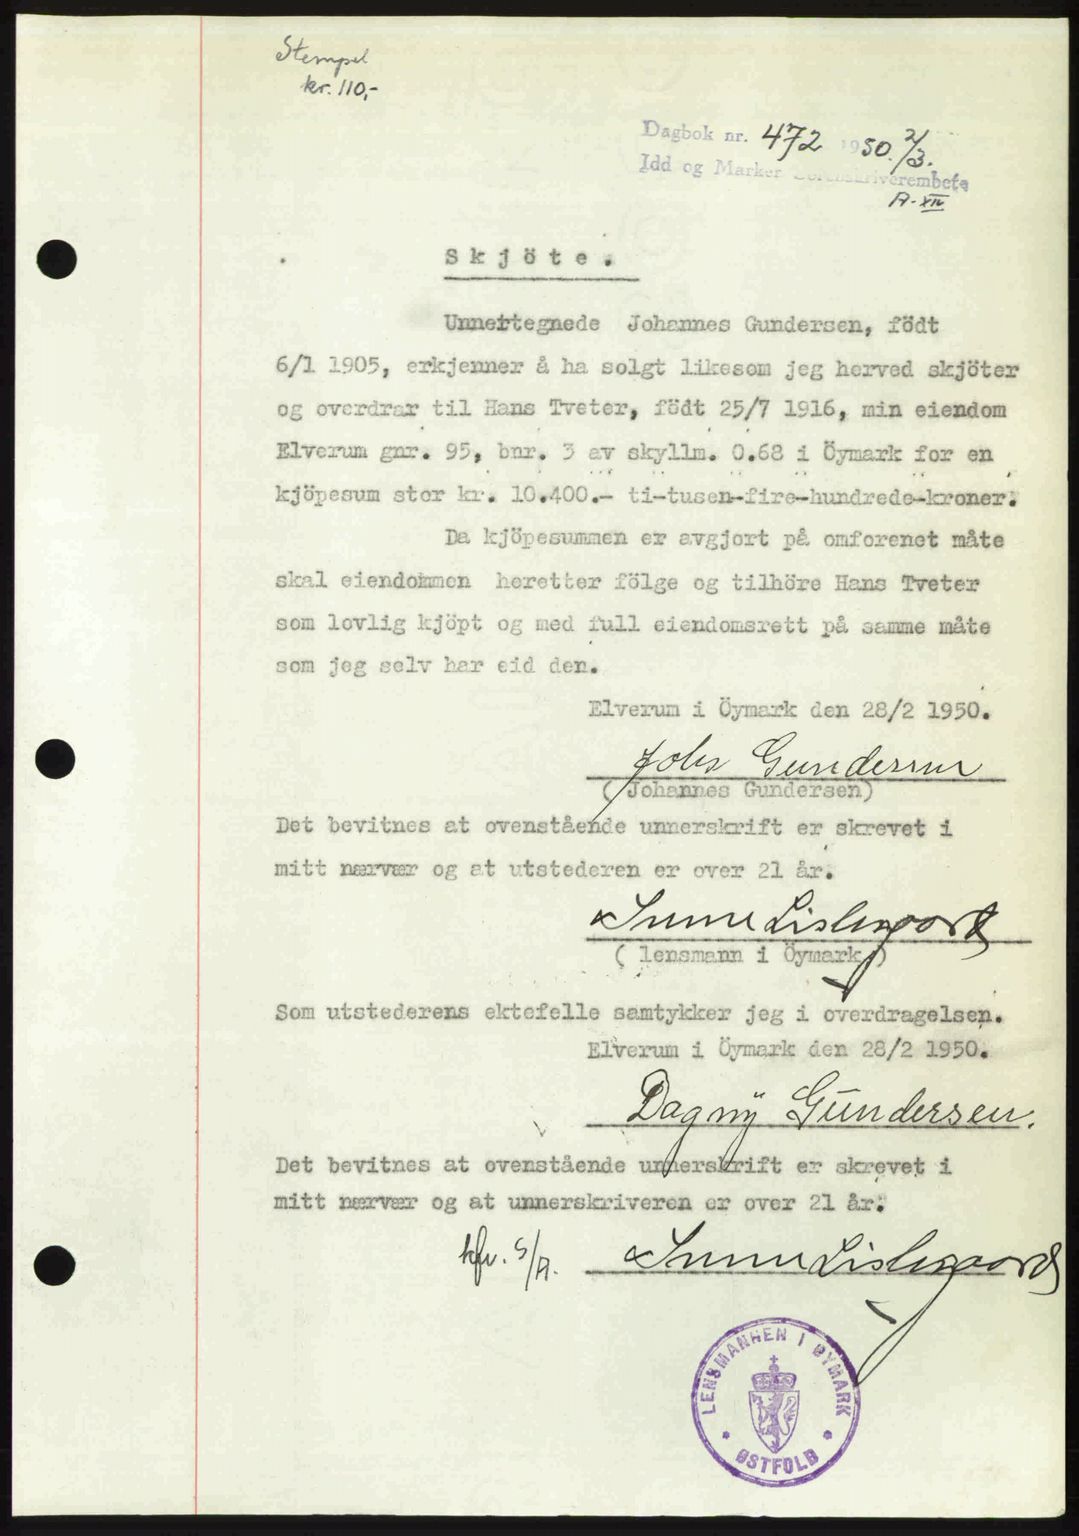 Stempel
kr. 110,-
Dagbok nr. 472 1950. 2/3.
Idd og Marker Sorenskriverembete
A-XIV
Skjöte.
Unnertegnede Johannes Gundersen, födt
6/1 1905, erkjenner å ha solgt likesom jeg herved skjöter
og overdrar til Hans Tveter, födt 25/7 1916, min eiendom
Elverum gnr. 95, bnr. 3 av skyllm. 0.68 i Öymark for en
kjöpesum stor kr. 10.400.- ti-tusen-fire-hundrede-kroner.
Da kjöpesummen er avgjort på omforenet måte
skal eiendommen heretter fölge og tilhöre Hans Tveter
som lovlig kjöpt og med full eiendomsrett på samme måte
som jeg selv har eid den.
Elverum i Öymark den 28/2 1950.
Johs Gundersen
( Johannes Gundersen)
Det bevitnes at ovenstående unnerskrift er skrevet i
mitt nærvær og at utstederen er over 21 år.
Lislegaard
( lensmann i Öymark )
Som utstederens ektefelle samtykker jeg i overdragelsen.
Elverum i Öymark den 28/2 1950.
Dagny Gundersen.
Det bevitnes at ovenstående unnerskrift er skrevet i
mitt nærvær og at unnerskriveren er over 21 år.
kfv. S/A. Lislegaard
LENSMANNEN I ØYMARK
ØSTFOLD